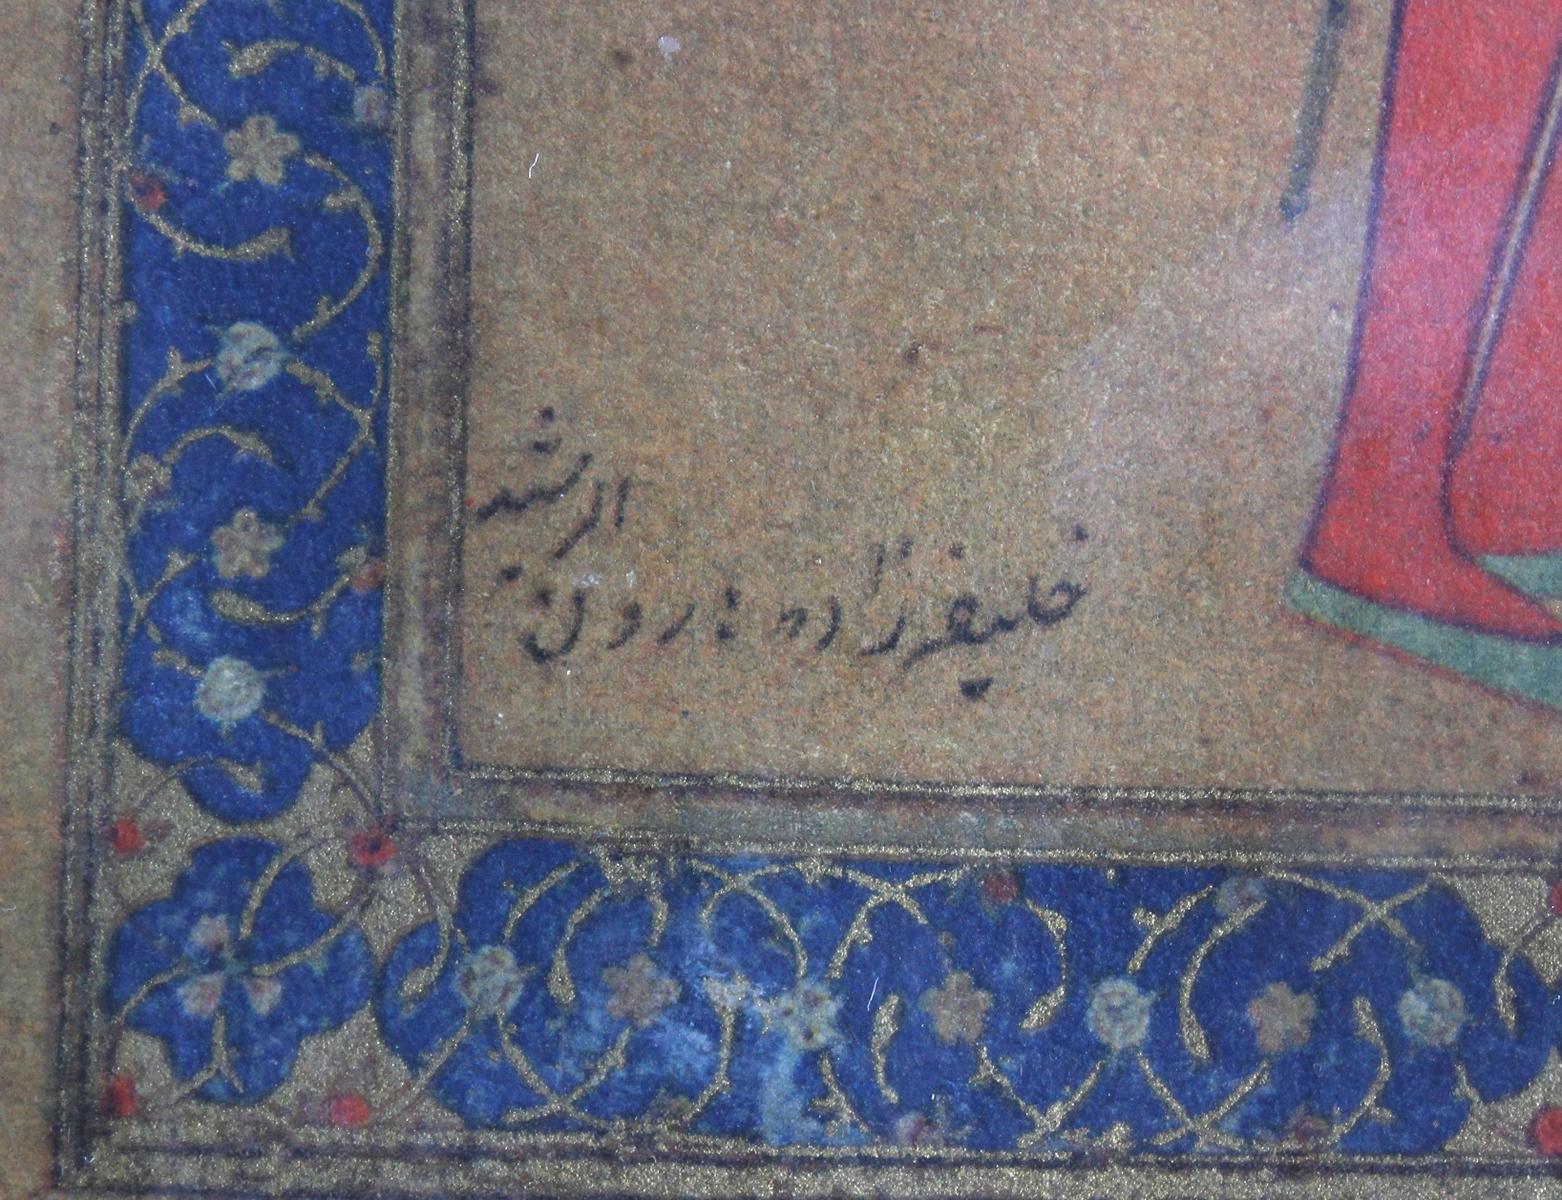 خلیفه زاده هارون
الرشید